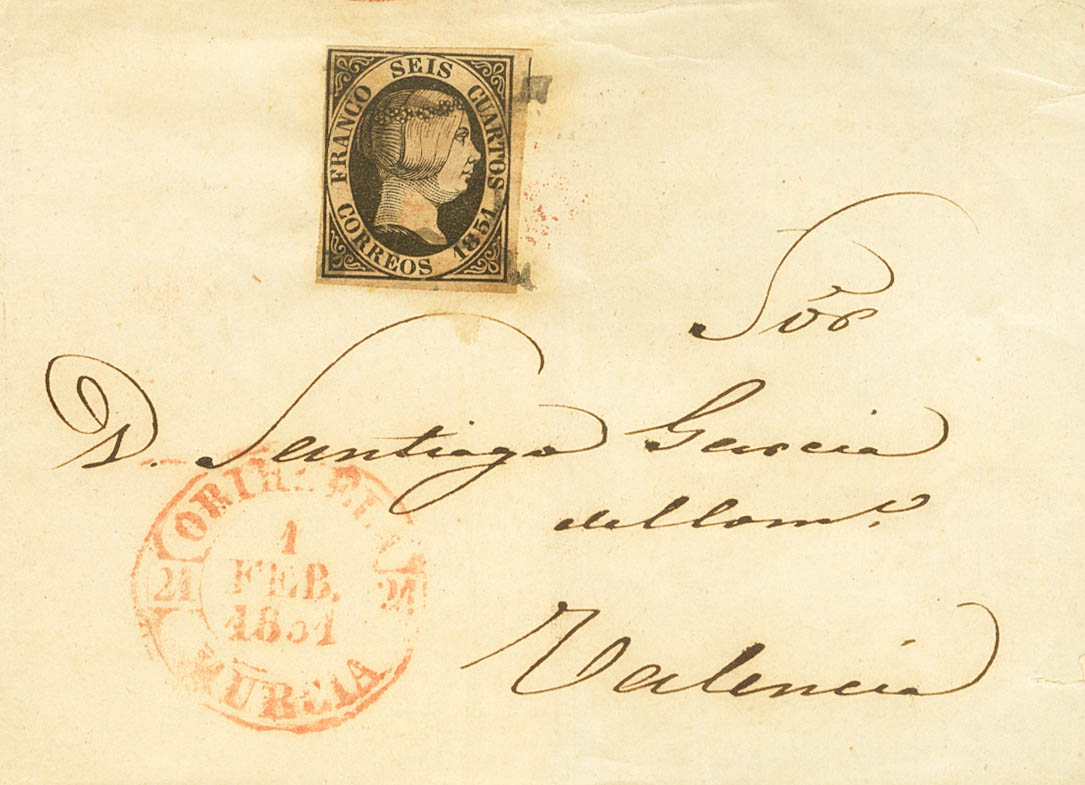 FRANCO SEIS CUARTOS
CORREOS 1851
Sör
D. Santiago Garcia
Valencia
ORIHUELA
21 1 21
FEB.
1851
MURCIA